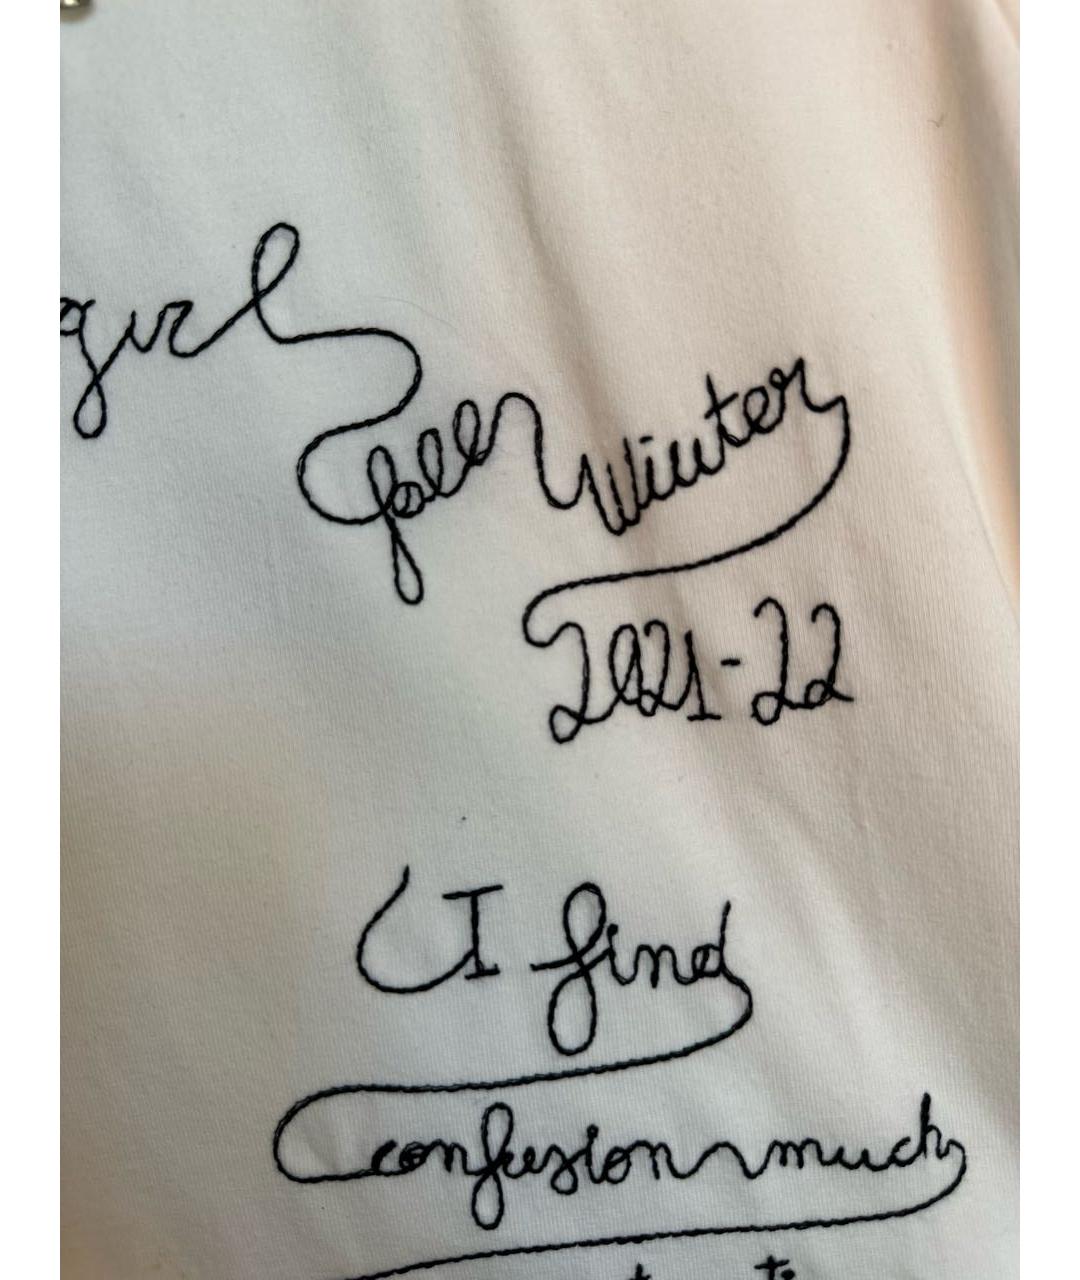 girl
fall Winter
2021-22
I find
confusion much